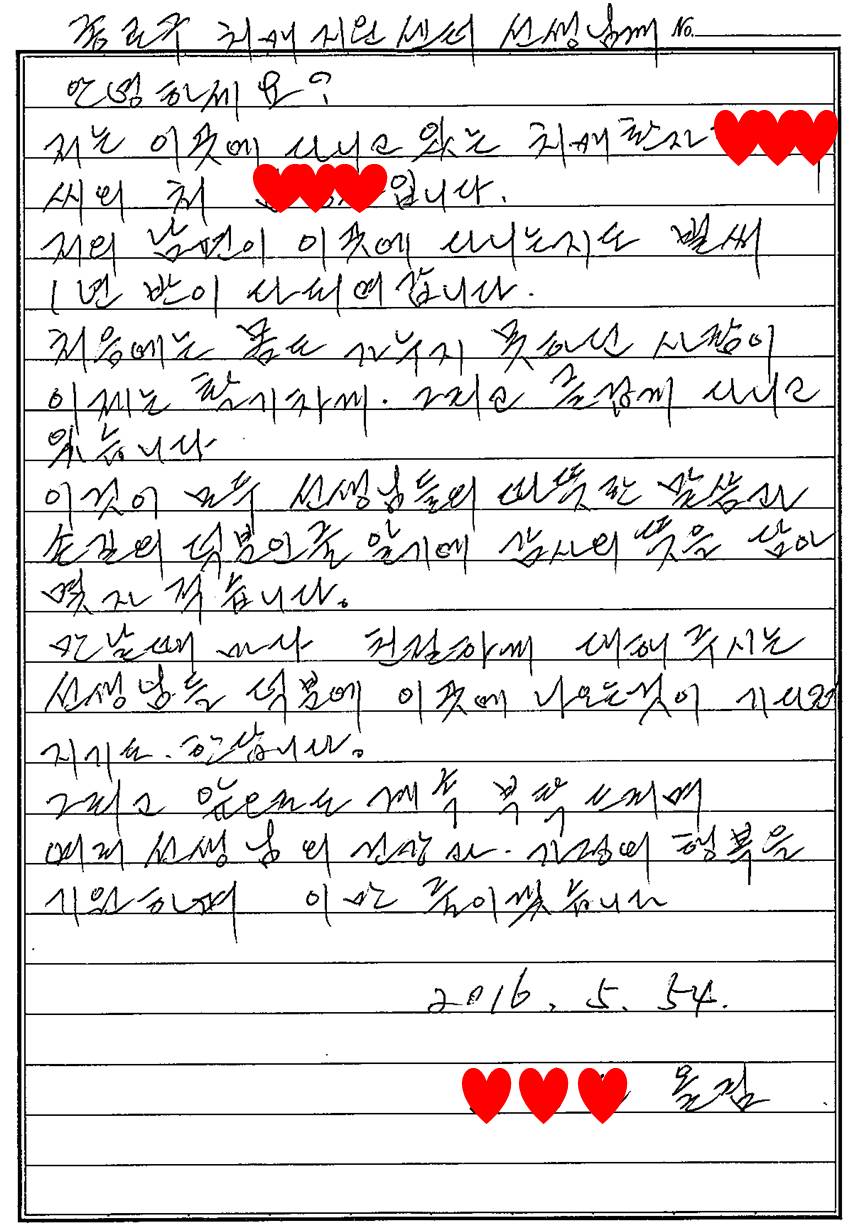 종로구 치매지원센터 선생님께 No.
안녕하세요?
저는 이곳에 다니고 있는 치매환자
씨의 처 입니다.
저의 남편이 이곳에 다니는지도 벌써
1년 반이 다 되여갑니다.
처음에는 몸도 가누지 못하던 사람이
이제는 활기차게. 그리고 즐겁게 다니고
있습니다
이것이 모두 선생님들의 따뜻한 말씀과
손길의 덕분인줄 알기에 감사의 뜻을 담아
몇자 적습니다.
만날때 마다 친절하게 대해 주시는
선생님들 덕분에 이곳에 나오는것이 기다려
지기도. 한답니다.
그리고 앞으로도 계속 부탁 드리며
여러 선생님의 건강과. 가정의 행복을
기원하며 이만 줄이겠습니다
2016. 5. 54.
올림